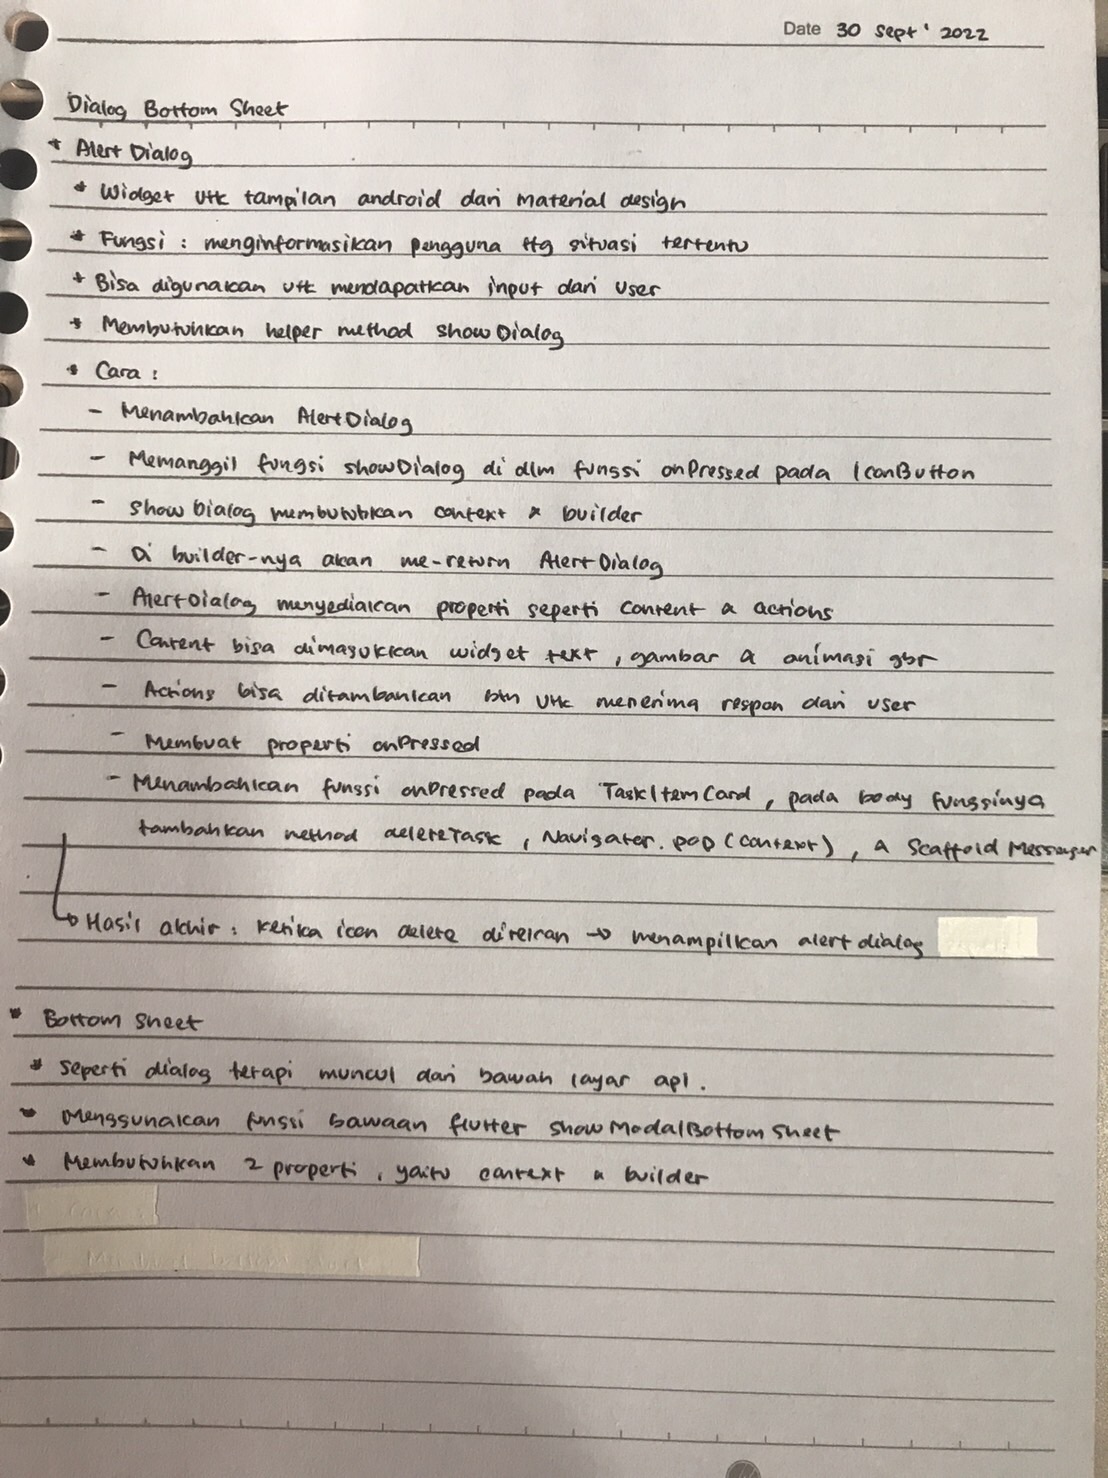 Date 30 Sept' 2022
Dialog Bottom Sheet
* Alert Dialog
* Widget utk tampilan android dari material design
* Fungsi : menginformasikan pengguna ttg situasi tertentu
* Bisa digunakan utk mendapatkan input dari user
* Membutuhkan helper method showDialog
* Cara :
- Menambahkan AlertDialog
- Memanggil fungsi showDialog di dlm fungsi onPressed pada IconButton
- showDialog membutuhkan context & builder
- Di builder-nya akan me-return AlertDialog
- AlertDialog menyediakan properti seperti content & actions
- Content bisa dimasukkan widget text, gambar & animasi gbr
- Actions bisa ditambahkan btn utk menerima respon dari user
- Membuat properti onPressed
- Menambahkan fungsi onPressed pada TaskItemCard, pada body fungsinya
tambahkan method deleteTask, Navigator.pop(context), & Scaffold Messenger
↳ Hasil akhir : ketika icon delete ditekan → menampilkan alert dialog
* Bottom Sheet
* Seperti dialog tetapi muncul dari bawah layar apl.
* Menggunakan fungsi bawaan flutter showModalBottomSheet
* Membutuhkan 2 properti, yaitu context & builder